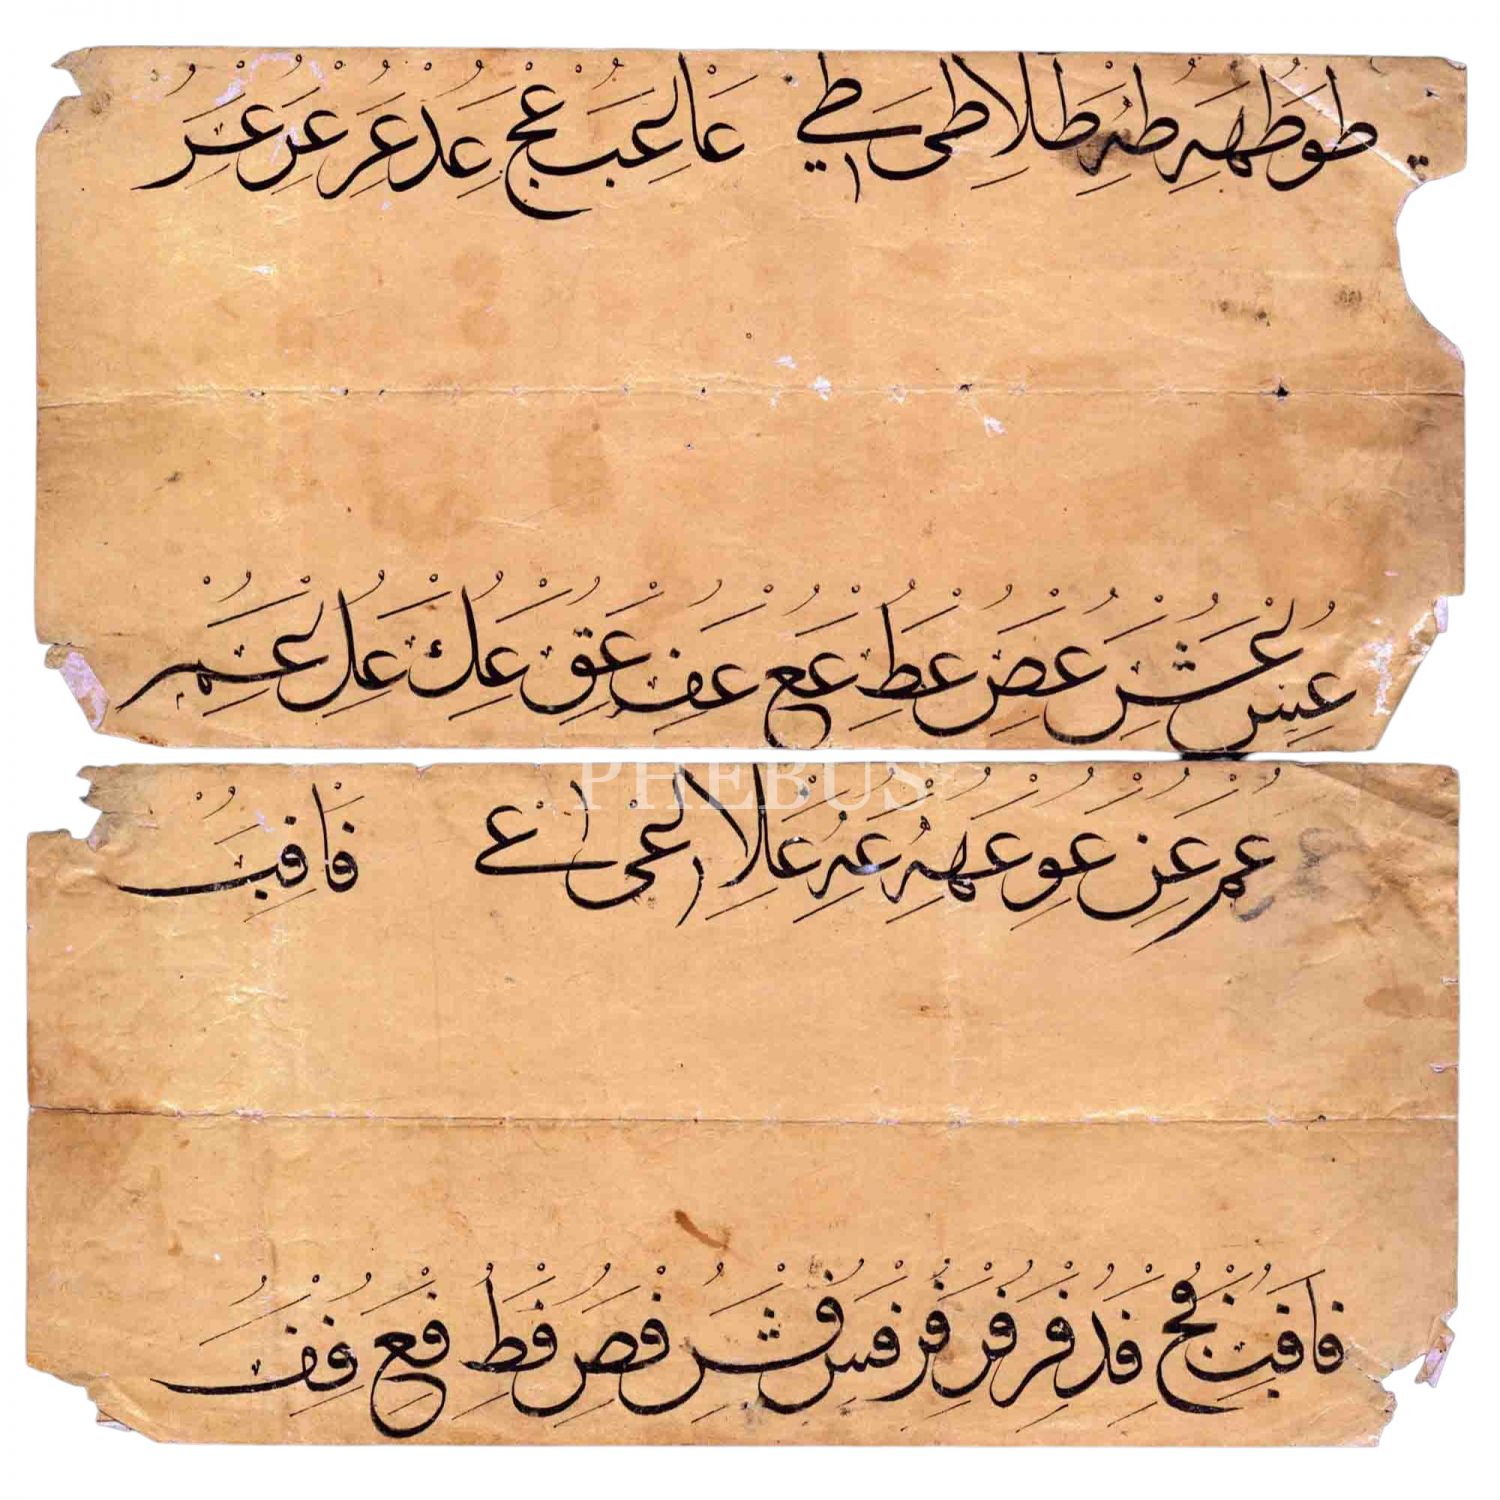 طو طهه طه طلا طى طے عا عب عج عد عر عر عر
عس عش عص عط عع عف عق عك عل عم
PHEBUS
عم عن عو عهه عه علا عى عے فا فب
فا فب فج فد فر فر فر فس فش فص فط فع فف